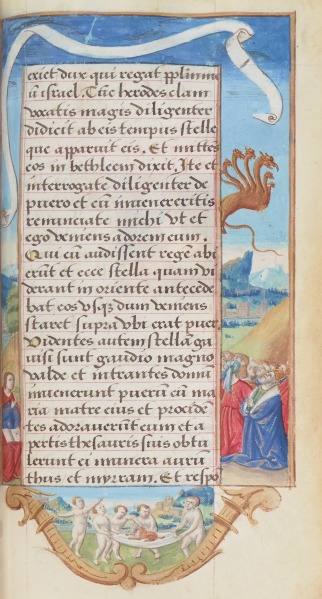 exiet dux qui regat pplm meu
u israel. Tūc herodes clam
vocatis magis diligenter
didicit ab eis tempus stelle
que apparuit eis. Et mittes
eos in bethleem dixit. Ite et
interrogate diligenter de
puero et cū inueneritis
renunciate michi vt et
ego veniens adorem eum.
Qui cū audissent regē abi
erūt et ecce stella quam vi
derant in oriente antecede
bat eos vsq dum veniens
staret supra vbi erat puer
Videntes autem stellā ga
uisi sunt gaudio magno
valde et intrantes domū
inuenerunt puerū cū ma
ria matre eius et procidē
tes adorauerūt eum et a
pertis thesauris suis obtu
lerunt ei munera aurū
thus et myrram. Et respo